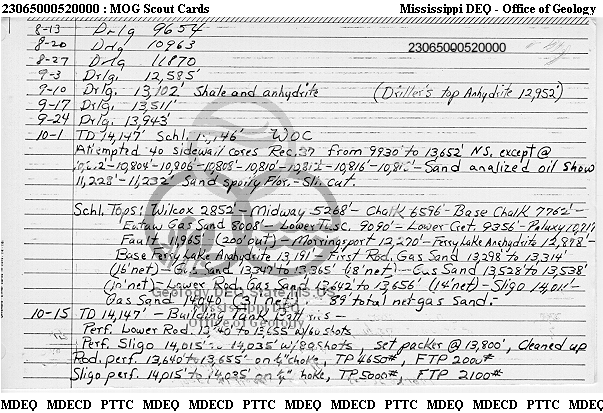 23065000520000 : MOG Scout Cards Mississippi DEQ - Office of Geology
8-13 Drlg 9654
8-20 Drlg 10963 23065000520000
8-27 Drlg 11870
9-3 Drlg. 12,585'
9-10 Drlg. 13,102' Shale and anhydrite (Driller's top Anhydrite 12,952')
9-17 Drlg. 13,511'
9-24 Drlg. 13,943'
10-1 TD 14,147' Schl. WOC
Attempted 40 sidewall cores Rec. 37 from 9930' to 13,652' NS. except @
-10,804'-10,806'-10,808'-10,810'-10,812'-10,816'- Sand analized oil show
11,228'-11,232' Sand spotty Flor.- Sli. cut.
Schl. Tops: Wilcox 2852'-Midway 5268'- Chalk 6596'-Base Chalk 7762'-
Eutaw Gas Sand 8008'-Lower Tusc. 9090'- Lower Cret. 9356'- Paluxy
Fault 11,965' (200' out) - Mooringsport 12,270'- Ferry Lake Anhydrite 12,898'-
Base Ferry Lake Anhydrite 13,191'- First Rod. Gas Sand 13,298' to 13,314'
(16' net)- Gas Sand 13,347' to 13,365' (18' net)- Gas Sand 13,528' to 13,538'
(10' net)- Lower Rod. Gas Sand 13,642' to 13,656' (14' net)- Sligo 14,011'-
Gas Sand 14,040' (31' net) - 89' total net gas sand.
Geology DEQ State MS US
Mississippi DEQ
Office of Geology
10-15 TD 14,147' - Building Tank
Perf. Lower Rod. 13,640' to 13,655' w/60 shots
Perf. Sligo 14,015' to 14,035' w/80 shots, set packer @ 13,800', Cleaned up
Rod. perf. 13,640' to 13,655' on ¼" choke, TP 4650#, FTP 2000#
Sligo perf. 14,015' to 14,035' on ¼" choke, TP 5000#, FTP 2100#
MDEQ MDECD PTTC MDEQ MDECD PTTC MDEQ MDECD PTTC MDEQ MDECD